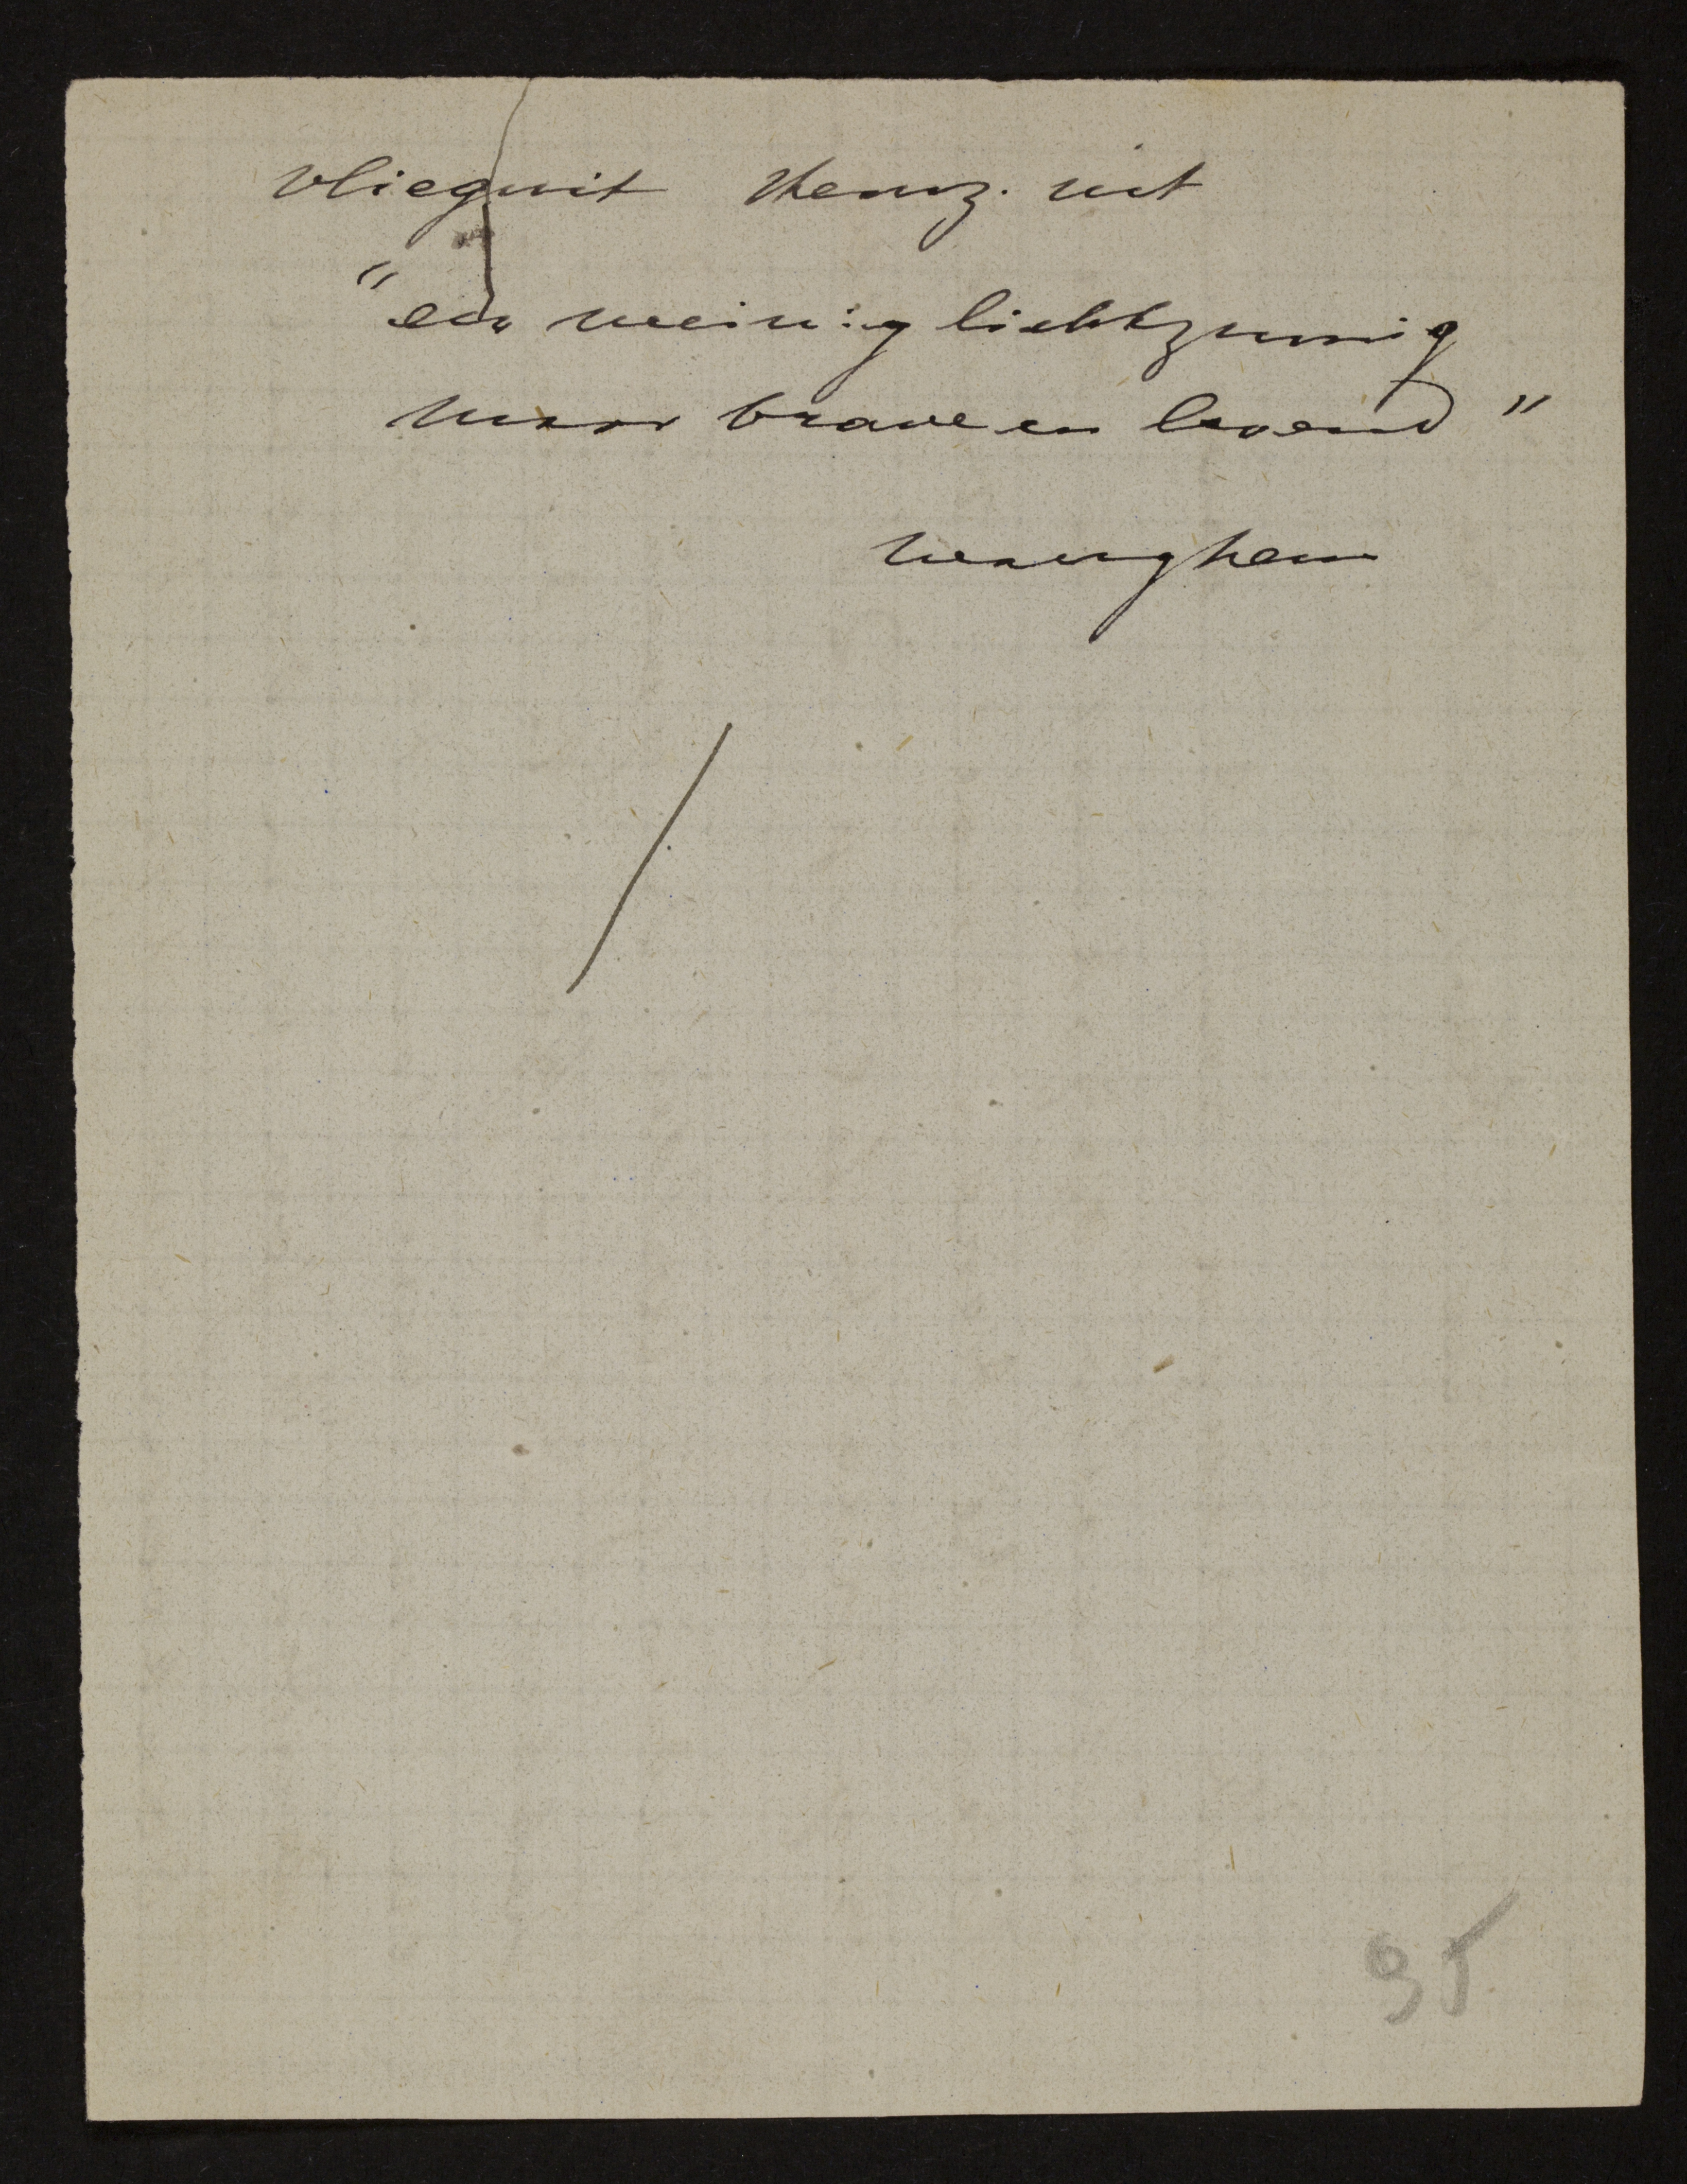 vlieguit   znwz. uit
"een weinig lichtzinnig
maar brave en levend"
Waereghem
95